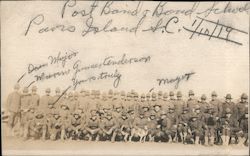 Post Band & Band School
Paris Island S.C. 1/10/19
Drum Major
Marine Gunner Anderson
Yours truly
Mayer